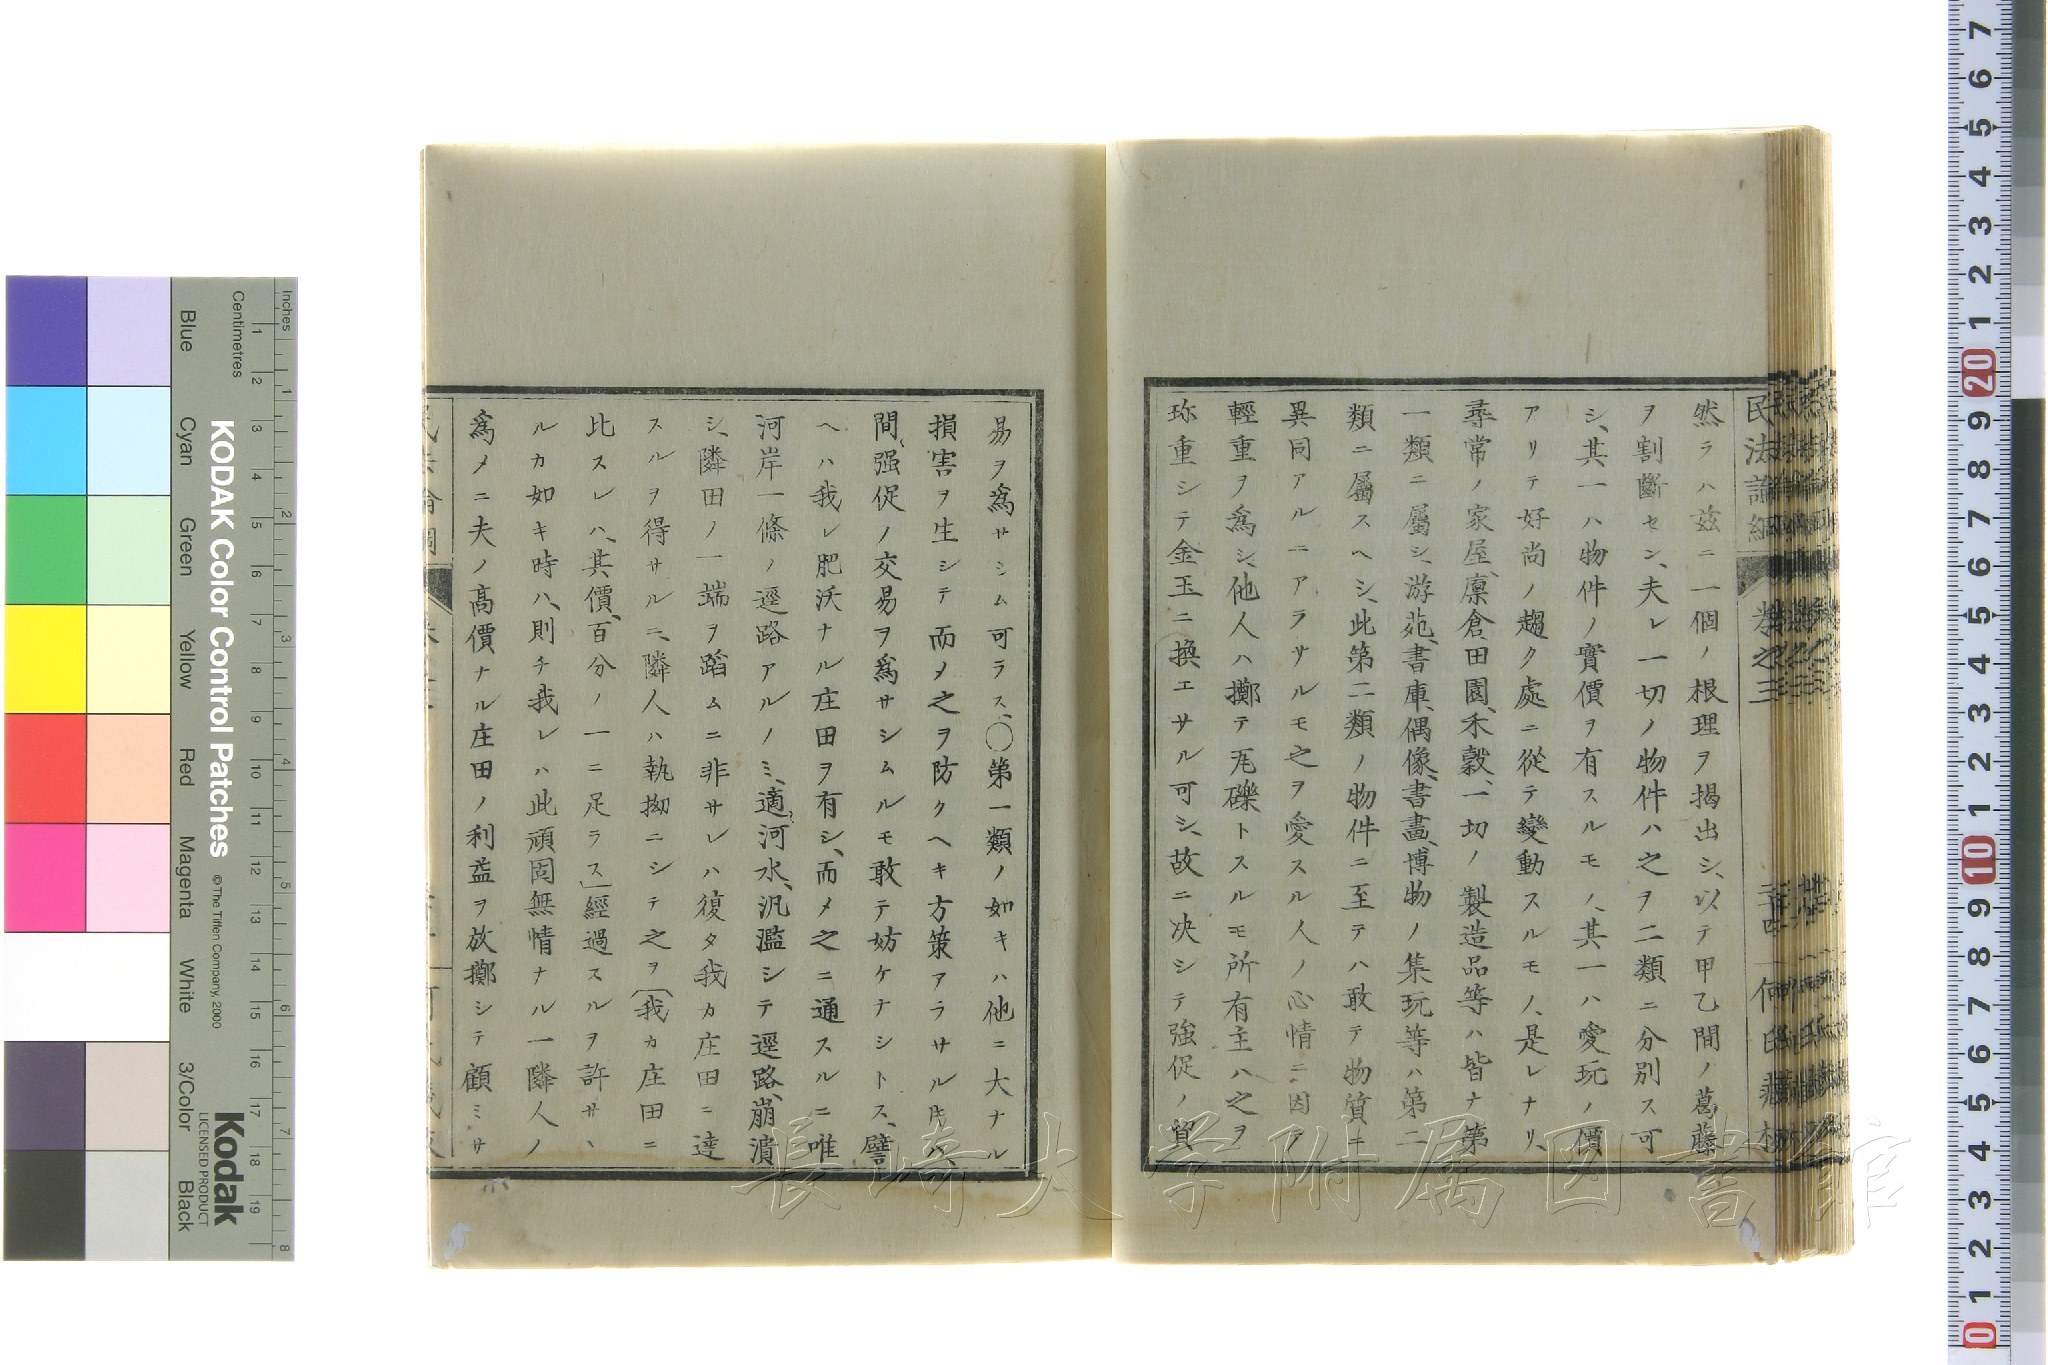 然ラハ茲ニ一個ノ根理ヲ揭出シ、以テ甲乙間ノ葛藤
ヲ割斷セン、夫レ一切ノ物件ハ之ヲ二類ニ分別ス可
シ、其一ハ物件ノ實價ヲ有スルモノ、其一ハ愛玩ノ價
アリテ好尚ノ趨ク處ニ從テ變動スルモノ、是レナリ、
尋常ノ家屋、廩倉、田園、禾穀、一切ノ製造品等ハ皆ナ第
一類ニ屬シ、游苑、書庫、偶像、書畫、博物ノ集玩等ハ第二
類ニ屬スヘシ、此第二類ノ物件ニ至テハ敢テ物質ニ
異同アルニアラサルモ之ヲ愛スル人ノ心情ニ因テ
輕重ヲ爲シ、他人ハ擲テ瓦礫トスルモ所有主ハ之ヲ
珎重シテ金玉ニ換エサル可シ、故ニ決シテ強促ノ貿
易ヲ爲サシム可ラス、〇第一類ノ如キハ他ニ大ナル
損害ヲ生シテ而メ之ヲ防クヘキ方策アラサル時ハ、
間、强促ノ交易ヲ爲サシムルモ敢テ妨ケナシトス、譬
ヘハ我レ肥沃ナル庄田ヲ有シ、而メ之ニ通スルニ唯
河岸一條ノ逕路アルノミ、適河水、汎濫シテ逕路、崩潰
シ、隣田ノ一端ヲ蹈ムニ非サレハ復タ我カ庄田ニ達
スルヲ得サルニ、隣人ハ執拗ニシテ之ヲ(我カ庄田ニ
比スレハ、其價、百分ノ一ニ足ラス)經過スルヲ許サヽ
ルカ如キ時ハ、則チ我レハ此頑固無情ナル一隣人ノ
爲メニ夫ノ高價ナル庄田ノ利益ヲ放擲シテ顧ミサ
民法論綱 卷之三
二十四 何氏藏板
KODAK Color Control Patches
© The Tiffen Company, 2000
Kodak
LICENSED PRODUCT
Inches
Centimetres
Blue Cyan Green Yellow Red Magenta White 3/Color Black
長崎大学附属図書館